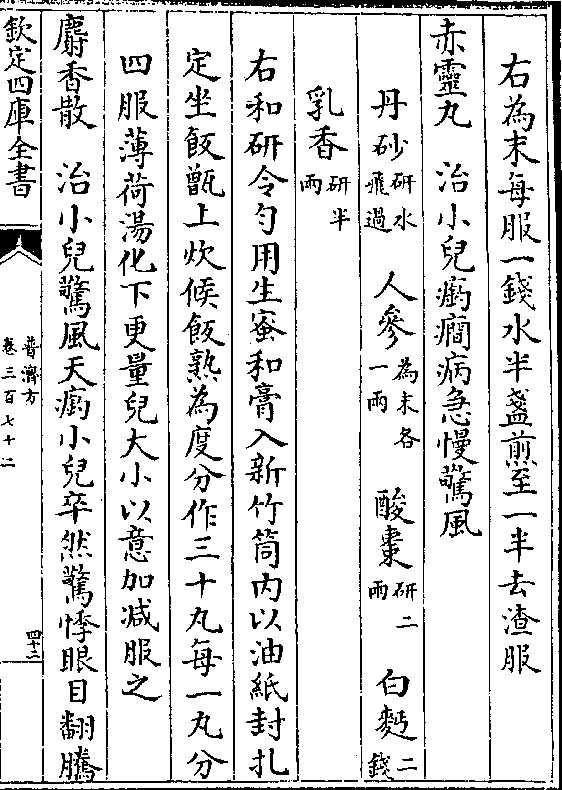 右為末每服一錢水半盞煎至一半去渣服
赤靈丸　治小兒癇病急慢驚風
丹砂研水飛過　人參為末各一兩　酸棗研二兩　白麪二錢
乳香研半兩
右和研令勻用生蜜和膏入新竹筒內以油紙封扎
定坐飯甑上炊候飯熟為度分作三十丸每一丸分
四服薄荷湯化下更量兒大小以意加減服之
麝香散　治小兒驚風天㾮小兒卒然驚悸眼目翻騰
欽定四庫全書
普濟方
卷三百七十二
四十二